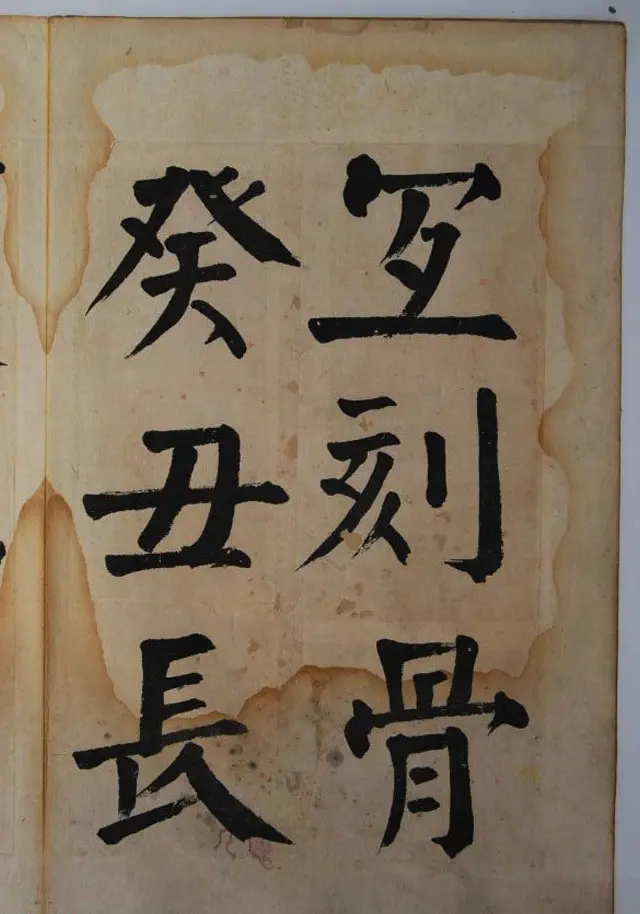 宜刻骨
癸丑長